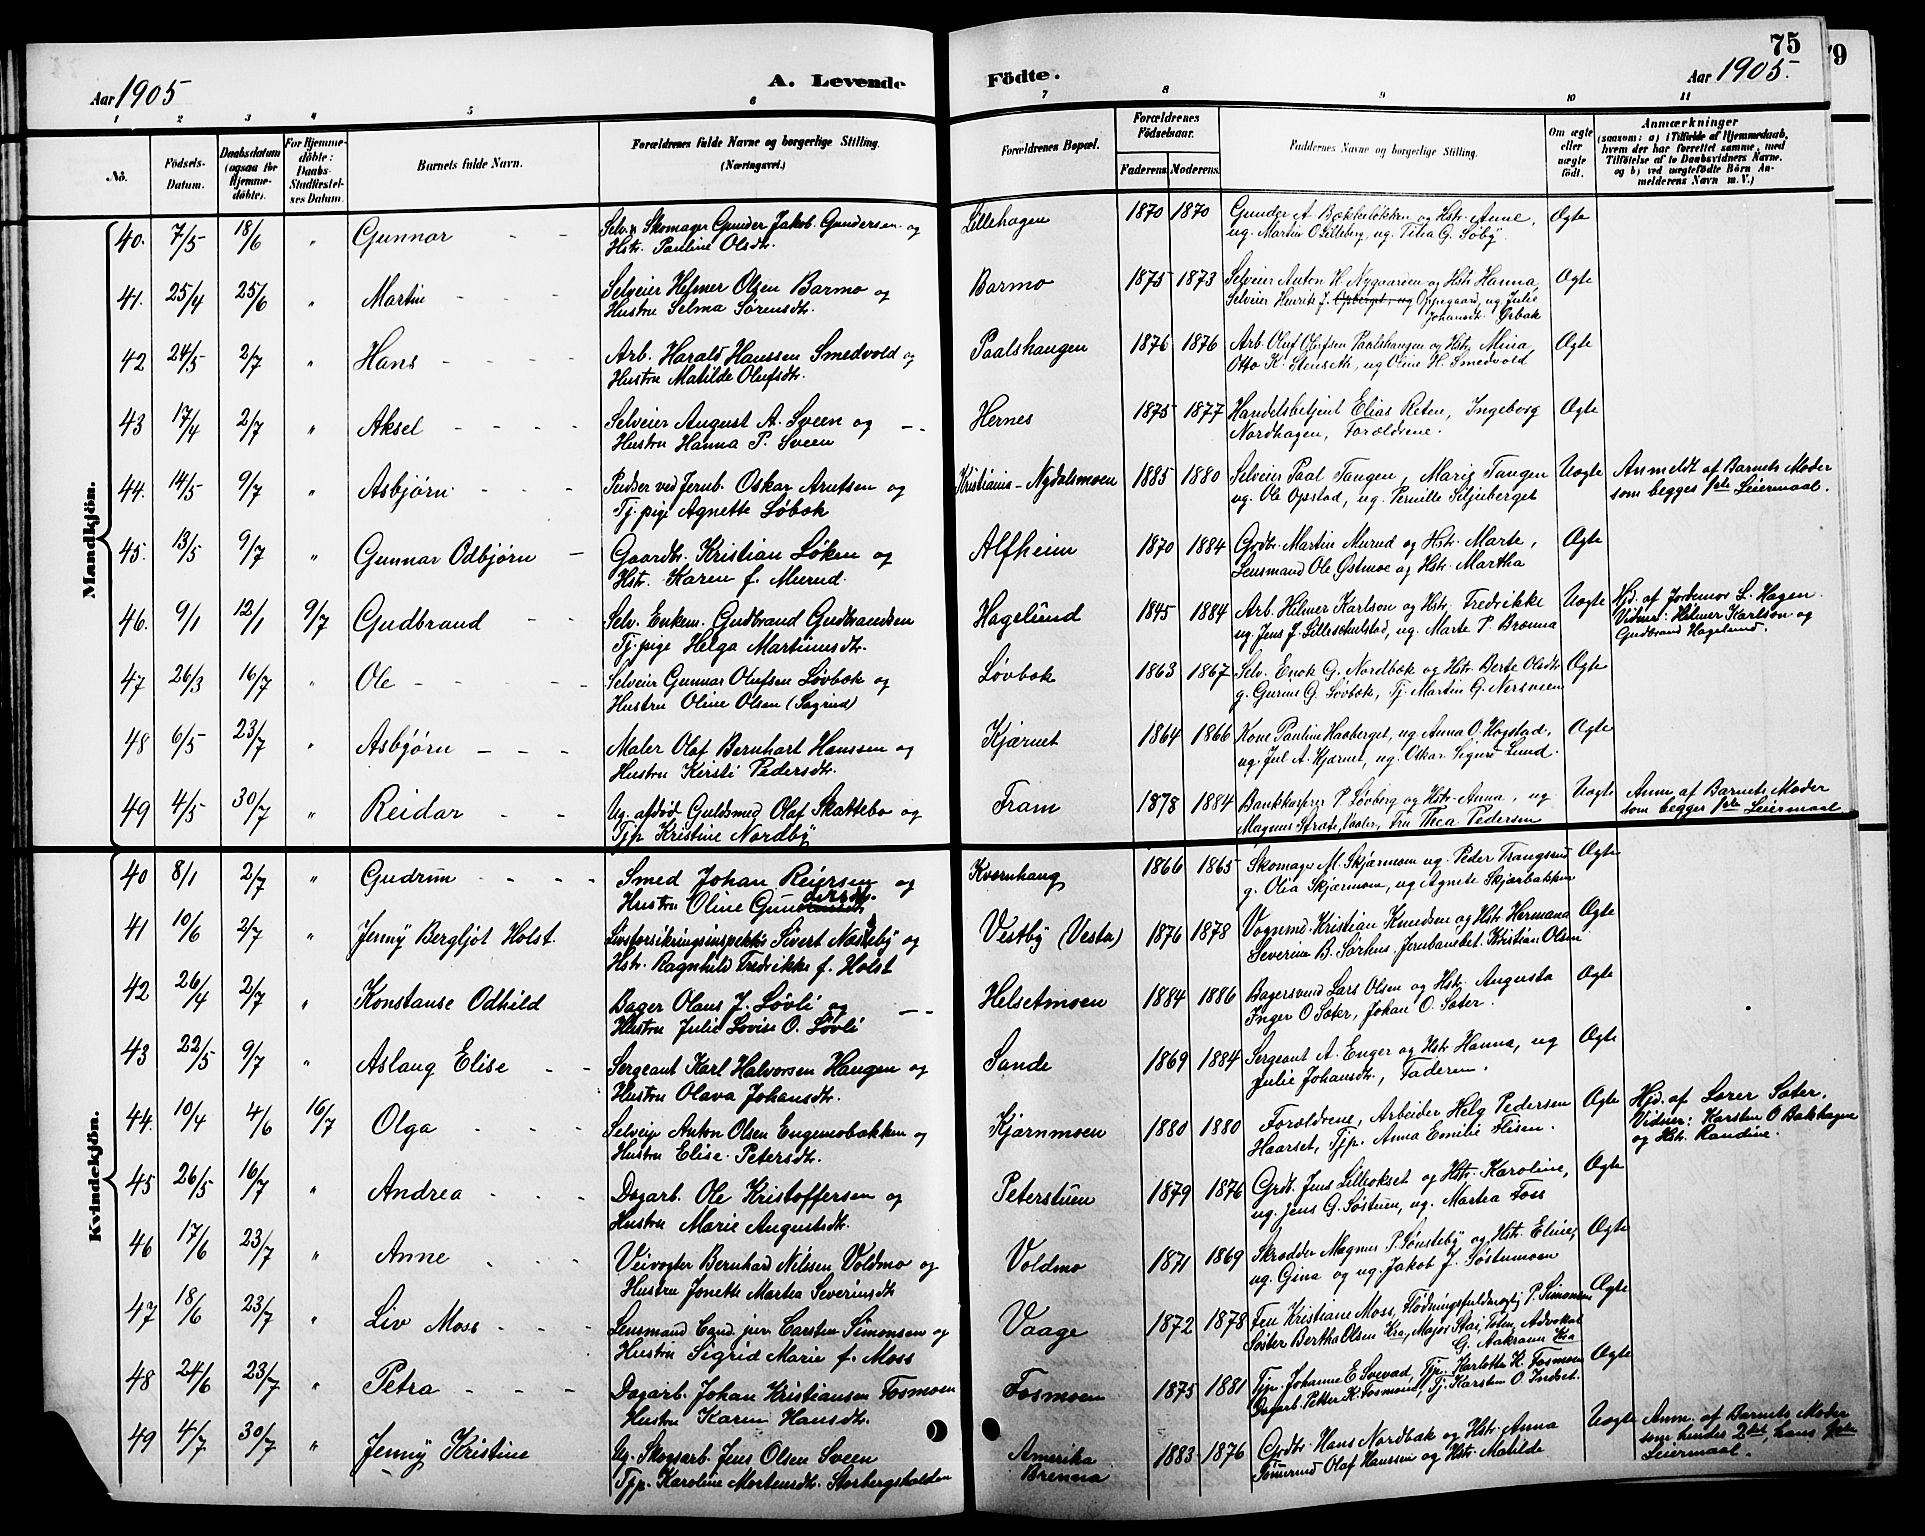 75
79
Aar 1905
A. Levende Födte.
Aar 1905.
1 2 3 4 5 6 7 8 9 10 11
No.
Födsels-Datum.
Daabsdatum (ogsaa for Hjemme-döbte).
For Hjemme-döbte: Daabs-Stadfæstel-ses Datum.
Barnets fulde Navn.
Forældrenes fulde Navne og borgerlige Stilling. (Næringsvei.)
Forældrenes Bopæl.
Forældrenes Födselsaar.
Faderens. Moderens.
Faddernes Navne og borgerlige Stilling.
Om ægte eller uægte födt.
Anmærkninger
(saasom: a) i Tilfælde af Hjemmedaab, hvem der har forrettet samme, med Tilföielse af to Daabsvidners Navne. og b) ved uægtefödte Börn Anmelderens Navn m. V.)
Mandkjön.
40. 7/5 18/6 " Gunnar Selv. Skomager Gunder Jakob Gundersen og Lillehagen 1870 1870 Gunder A. Bækkeløkken og Hstr. Anne, Ægte
Hstr. Pauline Olsdtr. ug. Martin O Lilleberg, ug. Tilia G. Søby.
41. 25/4 25/6 " Martin Selveier Helmer Olsen Barmo og Barmo 1875 1873 Selveier Anton H. Nygaarden og Hstr Hanna, Ægte
Hustru Selma Sørensdtr. Selveier Henrik J. Opberget, ug Oppegaard, ug. Julie
Johansdtr. Ørbæk
42 24/5 2/7 " Hans Arb. Harald Hanssen Smedvold og Paalshaugen 1876 1876 Arb. Oluf Olufsen Paalshaugen og Hstr. Mina, Ægte
Hustru Matilde Olufsdtr. Otto K. Stenseth, ug Oline H. Smedvold
43 17/4 2/7 " Aksel Selveier August A. Sveen og Hernes 1875 1877 Handelsbetjent Elias Reten, Ingeborg Ægte
Hustru Hanna P. Sveen Nordhagen, Forældrene.
44. 14/5 9/7 " Asbjørn Pudser ved Jernb. Oskar Arntsen og Kristiania - Nydalsmoen 1885 1880 Selveier Paal Tangen, Marig Tangen Uægte Anmeldt af Barnets Moder
Tj.pige Agnette Løbæk ug. Ole Opstad, ug. Pernille Siljuberget som begges 1ste Leiermaal.
45. 13/5 9/7 " Gunnar Odbjørn Gaardbr. Kristian Løken og Alfheim 1870 1884 Grdbr. Martin Murud og Hstr. Marte, Ægte
Hstr. Karen f. Murud. Lensmand Ole Østmoe og Hstr. Martha
46. 9/1 12/1 9/7 Gudbrand Selv. Enkem. Gudbrand Gudbrandsen Hagelund 1845 1884 Arb. Hilmer Karlson og Hstr. Fredrikke Uægte Hjd. af Jordemor L. Hagen.
Tj.pige Helga Martinusdtr. ug Jens J. Lilleschulstad, ug. Marte P. Brænna Vidner: Helmer Karlson og
Gudbrand Hagelund.
47 26/3 16/7 " Ole Selveier Gunnar Olufsen Løvbæk og Løvbæk 1863 1867 Selv. Enok G. Nordbæk og Hstr. Berte Olsdtr. Ægte
Hustru Oline Olsen (Sagrud) g. Gurine G. Løvbæk, Tj. Martin G. Nersveen
48 6/5 23/7 " Asbjørn Maler Olaf Bernhart Hanssen og Kjærnet 1864 1866 Kone Pauline Haaberget, ug Anna O. Hogstad, Ægte
Hustru Kirsti Pedersdtr. ug. Jul A. Kjærnet, ug. Oskar Sigurd Lund.
49 4/5 30/7 " Reidar Ug. afdød Guldsmed Olaf Skattebo og Fram 1878 1884 Bankkasserer P. Løvberg og Hstr. Anna, ug Uægte Anm. af Barnets Moder
Tjp Kristine Nordby Magnus Stræte, Vaaler, Fru Thea Pedersen som begges 1ste Leiermaal.
Kvindekjön.
40 8/1 2/7 " Gudrun Smed Johan Reiersen og Kværnhaug 1866 1865 Skomager M. Skjærmoen ug. Peder Trangsrud Ægte
Hustru Oline Gundersdtr. g. Olia Skjærmoen, ug Agnete Skjærbakken
41 10/6 2/7 " Jenny Bergljot Holst. Livsforsikringsinspektør Sivert Næsseby og Vestby (Vesta) 1876 1878 Vognmd. Kristian Knudsen og Hstr Hermana Ægte
Hstr. Ragnhild Fredrikke f. Holst Severine B. Sørhus, Jernbanebet. Kristian Olsen
42 26/4 2/7 " Konstanse Odhild Bager Olaus J. Løvli og Helsetmoen 1884 1886 Bagersvend Lars Olsen og Hstr. Augusta Ægte
Hustru Julie Lovise O. Løvli Inger O Sæter, Johan O. Sæter.
43 22/5 9/7 " Aslaug Elise Sergeant Karl Halvorsen Haugen og Sande 1869 1884 Sergeant A. Enger og Hstr Hanna, ug Ægte
Hustru Olava Johansdtr. Julie Johansdtr., Faderen.
44. 10/4 4/6 16/7 Olga Selveier Anton Olsen Engemobakken og Kjærnmoen 1880 1880 Forældrene, Arbeider Helg Pedersen Ægte Hjd. af Lærer Sæter.
Hustru Elise Petersdtr. Haarset, Tjp. Anna Emilie Flisen. Vidner: Karsten O Bakhagene
og Hstr. Randine.
45 26/5 16/7 " Andrea Dagarb. Ole Kristoffersen og Peterstuen 1879 1876 Grdb. Jens Lilleokset og Hstr. Karoline, Ægte
Hustru Marie Augustsdtr. ug. Jens G. Søstuen, ug. Martea Foss
46 17/6 23/7 " Anne Veivogter Bernhard Nilssen Voldmo og Voldmo 1871 1869 Skrædder Magnus P. Sønsteby og Hstr. Eline, Ægte
Hustru Jonette Martea Severinsdtr ug. Gina og ug. Jakob J. Søstumoen
47 18/6 23/7 " Liv Moss Lensmand Cand. jur. Carsten Simonsen og Vaage 1872 1878 Fru Kristiane Moss, Flødningsfuldmægtig P. Simonsen Ægte
Hustru Sigrid Marie f. Moss Søster Bertha Olsen Kra, Major Stai, Toten, Advokat
G. Aakrann Kra
48 24/6 23/7 " Petra Dagarb. Johan Kristiansen Fosmoen Fosmoen 1875 1881 Tjp. Johanne E Svevad, Tjp. Karlotte K. Fosmoen Ægte
Hustru Karen Hansdtr. Dagarb. Petter K. Fosmoen, Tj. Karsten O. Indset.
49 4/7 30/7 " Jenny Kristine Ug. Skogsarb. Jens Olsen Sveen Amerika 1883 1876 Grdbr. Hans Nordbæk og Hstr. Anna Uægte Anm. af Barnets Moder
Tjp. Karoline Mortensdtr. Storbergsholden Brenna Tømmermd Olaf Hanssen og Hstr. Matilde som hendes 2det hans 1ste
Leiermaal.